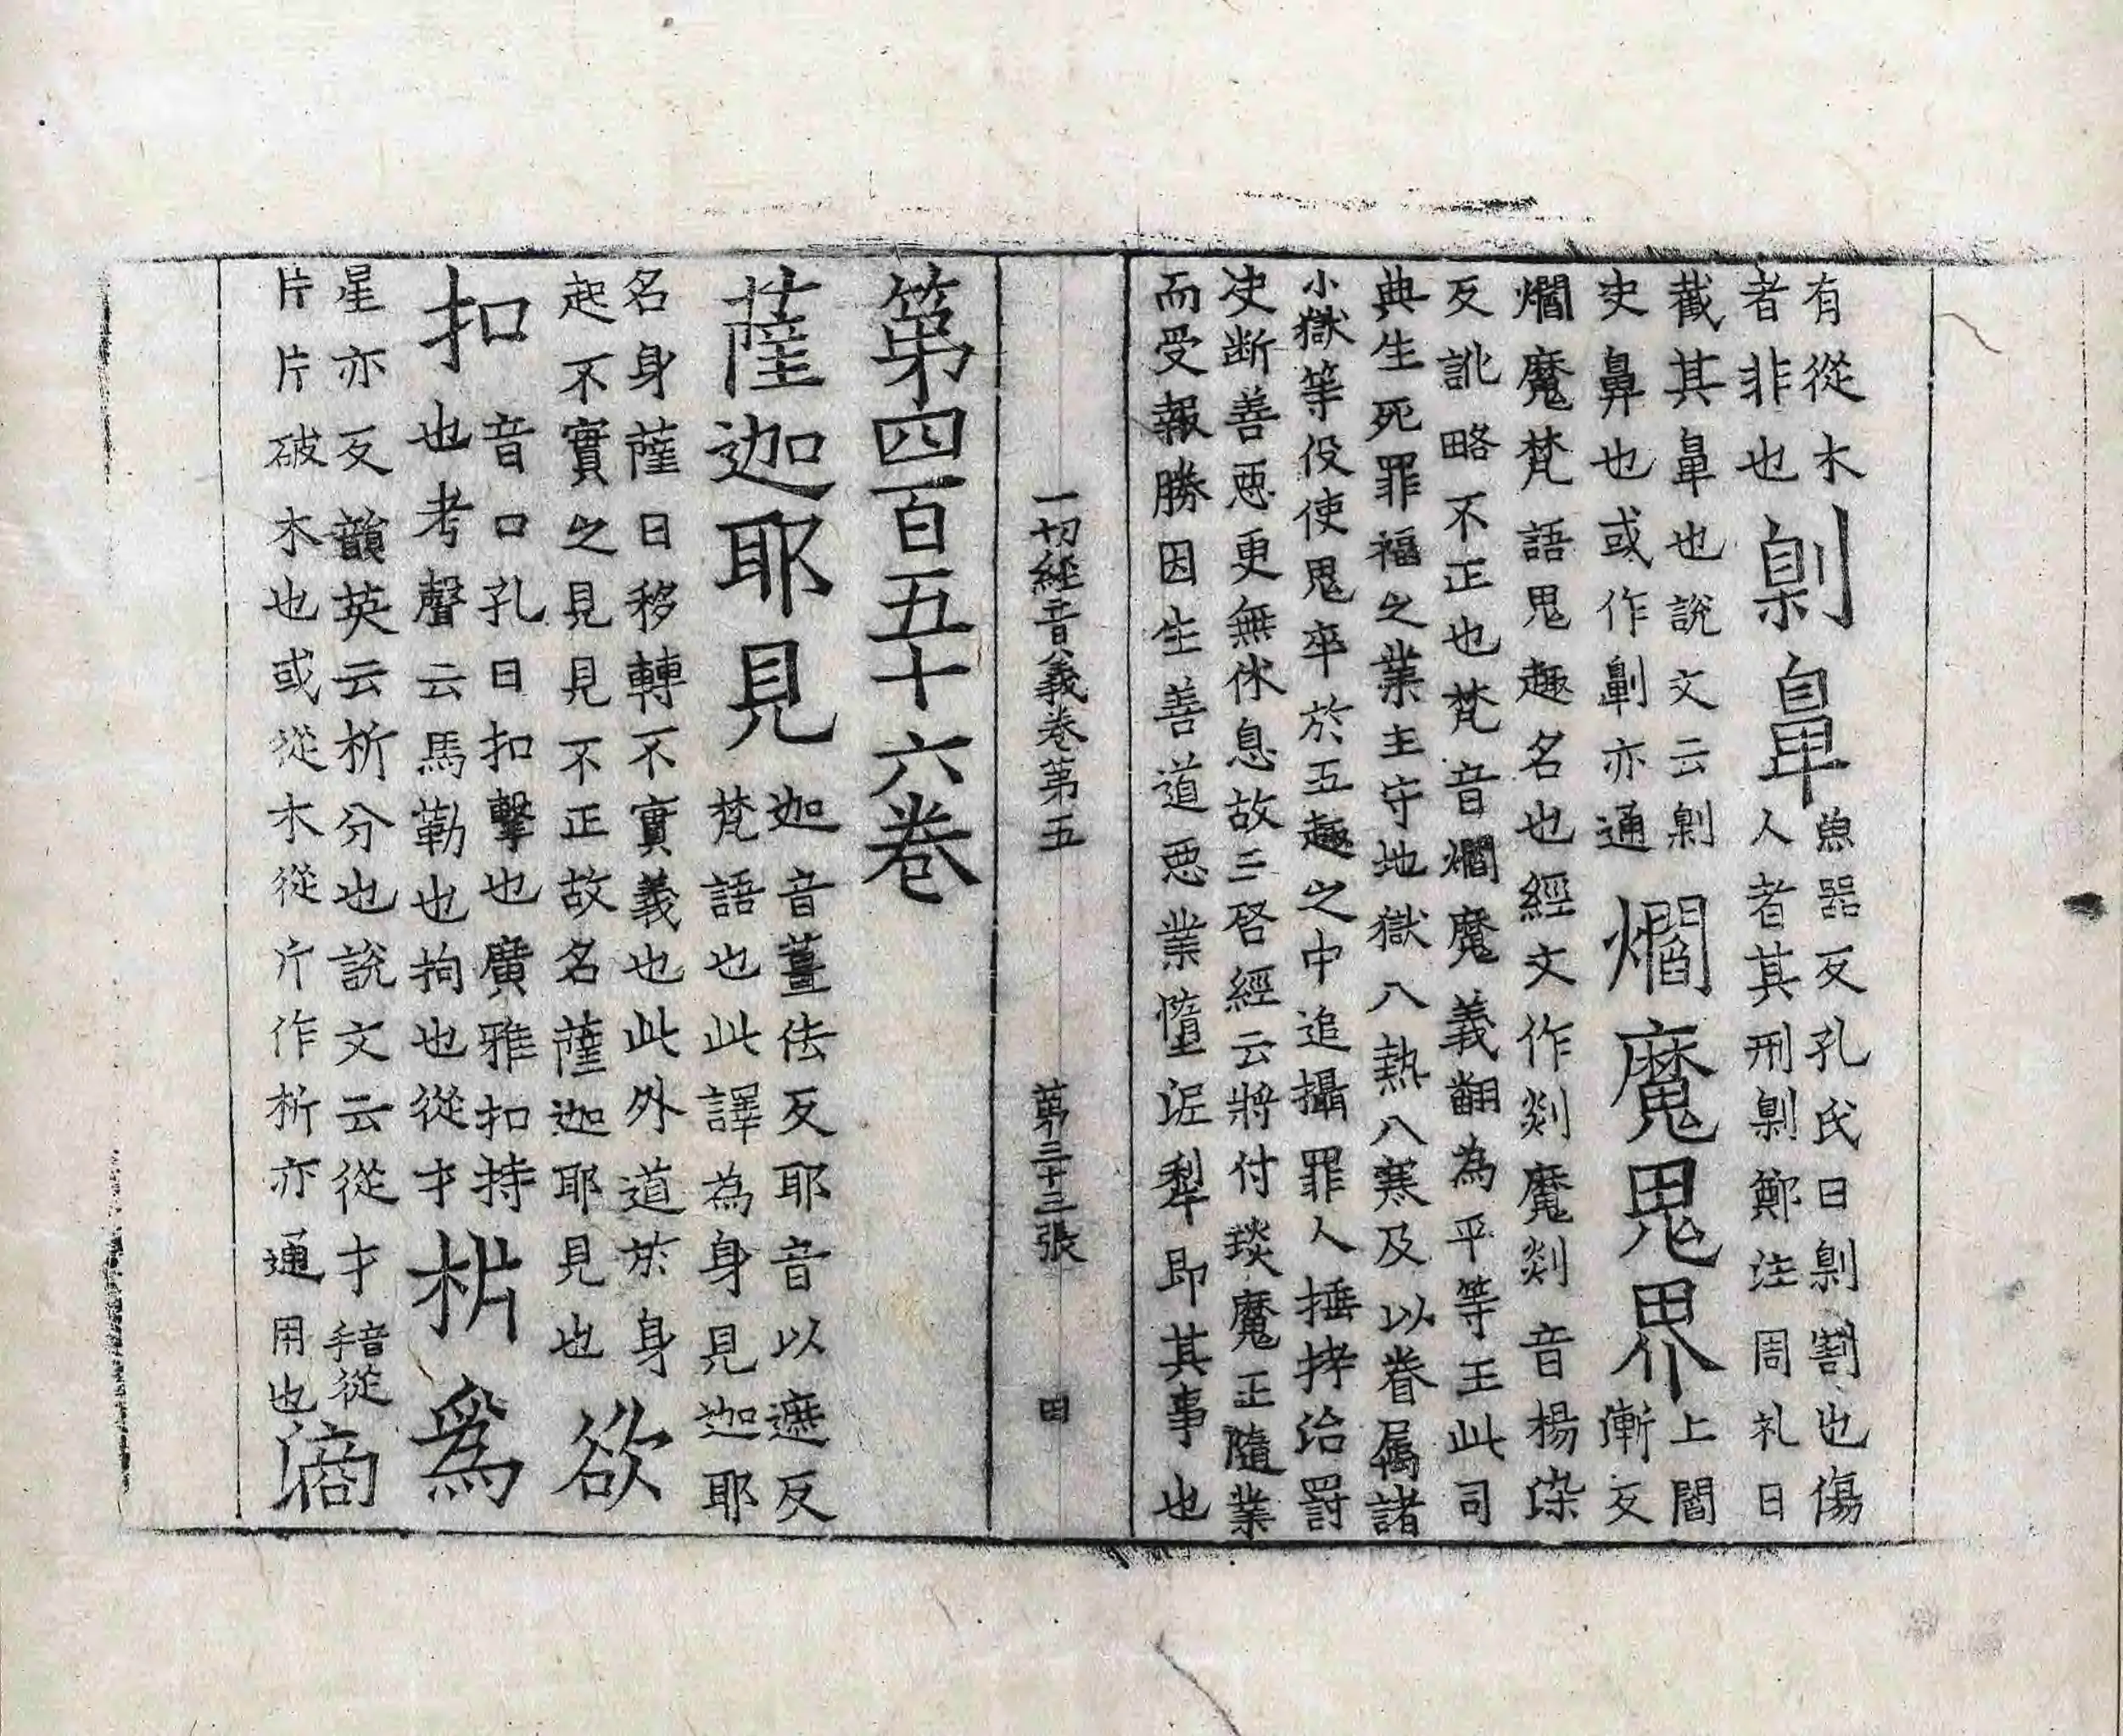 有從木劓鼻魚器反孔氏曰劓割也傷
者非也人者其刑劓鄭注周礼曰
截其鼻也說文云劓爓魔鬼界上閻
史鼻也或作劓亦通漸反
爓魔梵語鬼趣名也經文作剡魔剡音楊染
反訛略不正也梵音爓魔義翻為平等王此司
典生死罪福之業主守地獄八熱八寒及以眷属諸
小獄等役使鬼卒於五趣之中追攝罪人捶拷治罰
决断善悪更無休息故三啓經云將付琰魔王隨業
而受報勝因生善道悪業墮泥犁即其事也
一切經音義卷第五 第三十三張 田
第四百五十六卷
薩迦耶見迦音薑佉反耶音以遮反
梵語也此譯為身見迦耶
名身薩曰移轉不實義也此外道於身
起不實之見見不正故名薩迦耶見也欲
扣音口孔曰扣擊也廣雅扣持
也考聲云馬勒也拘也從才析為
星亦反韻英云析分也說文云從才音手從
片片破木也或從木從斤作析亦通用也滴